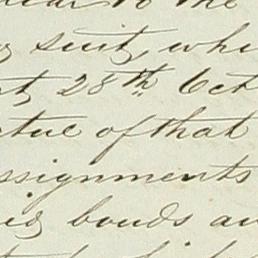 to the
suit, whi
28th Oct
tue of that
ssignments
bonds an